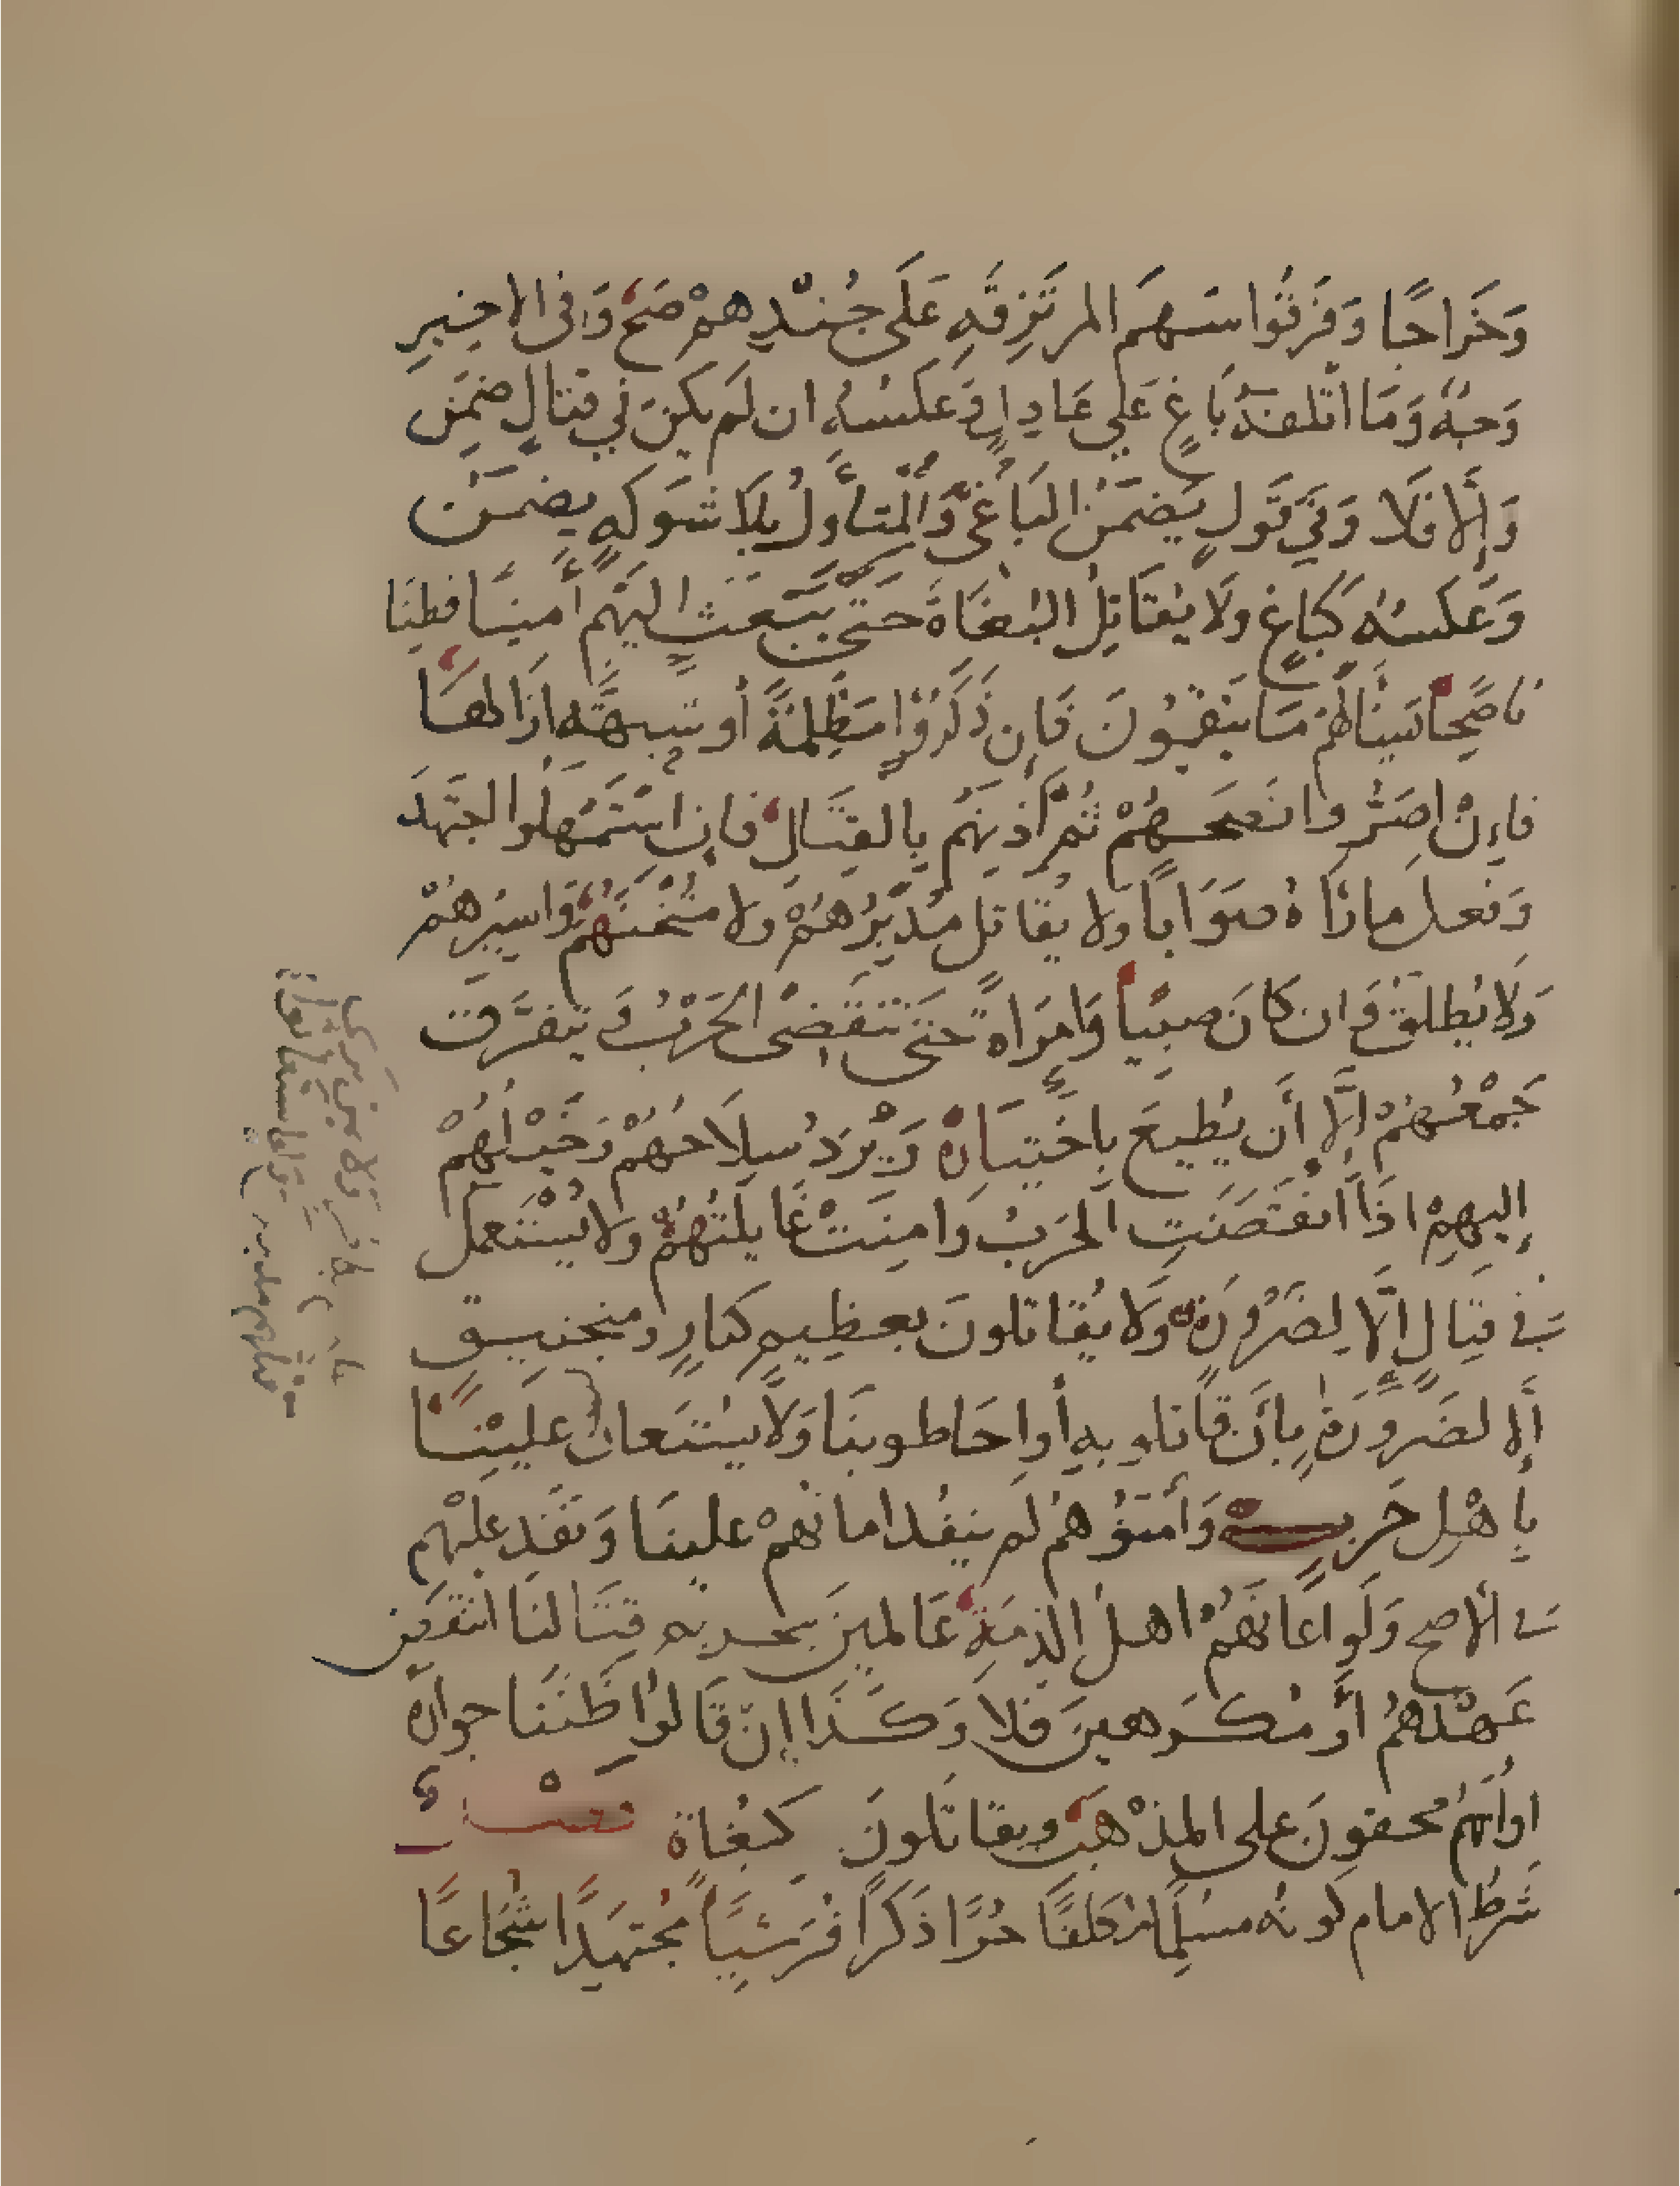 وَخَرَاجًا وَفَرَّقُوا سَهمَ المرتَزِقَهِ عَلَى جُندِهمْ صَحَّ وَفى الاخيرِ
وَجهٌ وَمَا اتلفهُ بَاغٍ عَلي عَادلٍ وَعَكسُهُ ان لَم يكن في قتالٍ ضمِن
وَإِلَّا فلَا وَفِي قَولٍ يَضمَنُ البَاغى وَالمتأَولُ بِلَا شَوكهٍ يضمن
وَعَكسُهُ كَبَاغٍ ولَا يُقَاتِلُ البُغَاةَ حَتى يَبعَثَ اليهَم أَمِينًا فطِنَا
نَاصِحًا يَسْأَلهُم مَا يَنقِمُونَ فَإِن ذَكَرُوا مَظلِمَةً أو شبهةً ازالهَا
فإِنْ اصَرُّوا نصَحَهُمْ ثُمَّ آذنَهُم بِالقِتَالِ فَإِن اسْتَمْهَلُوا اجتَهَدَ
وَفعل ما رَاهُ صَوَابًا ولا يُقَاتل مُدْبِرُهُمْ وَلا مثخنَهُمْ وَاسيرُهُمْ
وَلَا يُطلَقُ وَان كَانَ صبِيًا وَامرَاةً حَتى تنقَضىَ الحَرْبُ وَيتفرَّقَ
جَمْعُهُمْ إلَّا أَن يُطِيعَ بِاختِيَارهِ وَيُرَدُ سِلَاحُهُمْ وَخَيْلُهُمْ
إِليهِمْ اذَا انْقَضَتِ الحَربُ وَامِنَتْ غَايلَتُهُمْ وَلَا يُسْتَعمل
فى قِتَالٍ إِلَّا لِضَرُورَةٍ وَلَا يُقَاتلونَ بعظِيمٍ كنارٍ ومنجنيقٍ
إلا لضَرورَةٍ بِأَن قَاتلوا بهِ أَو احَاطوا بنَا وَلَا يُستَعانُ عَليْهِمْ
بِأهْلِ حَربٍ وَأمّنوهُم لَم ينفُد امانُهمْ علينَا وَنفَدَ عليْهِم
فى الأصح وَلَو اعَانَهُمْ اهلُ الذِمَةِ عَالمينَ بتحريم قِتَالنَا انتقَضَ
عَهْدُهُمُ أو مُكرَهينَ فَلا وَكَذَا إنْ قَالوا ظَنَنَا جوازَهُ
او أَنهم محقونَ على المذْهَب ويقاتَلونَ كَبُغَاةٍ فصل
شَرطُ الامام كونه مسْلِمًا مُكَلفًا حُرًّا ذَكَرًا قُرَشِيًا مُجتَهِدًا شُجَاعًا